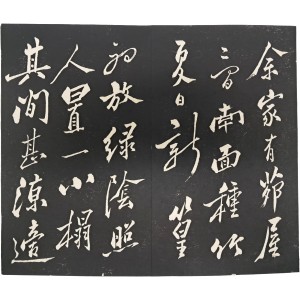 余家有茆屋
二间南面種竹
夏日新篁
初放緑陰照
人置一小榻
其间甚涼適